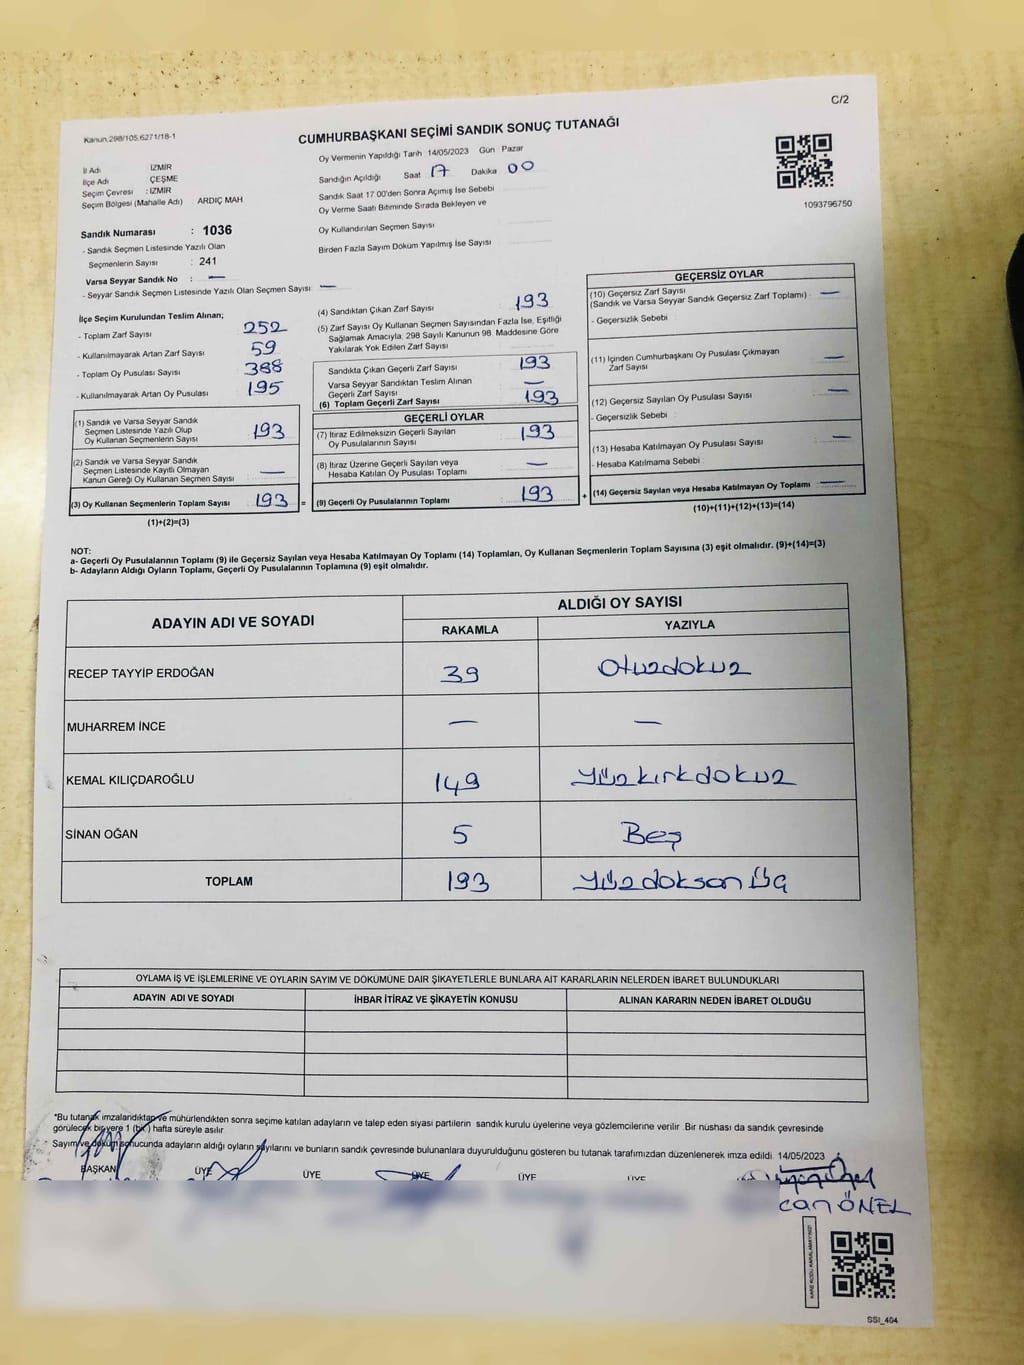 C/2
Kanun.298/105,6271/18-1
CUMHURBAŞKANI SEÇİMİ SANDIK SONUÇ TUTANAĞI
İl Adı : İZMİR
İlçe Adı : ÇEŞME
Seçim Çevresi : İZMİR
Seçim Bölgesi (Mahalle Adı) : ARDIÇ MAH
Oy Vermenin Yapıldığı Tarih 14/05/2023 Gün Pazar
Sandığın Açıldığı Saat 17 Dakika 00
Sandık Saat 17 00'den Sonra Açımış İse Sebebi
Oy Verme Saati Bitiminde Sırada Bekleyen ve
Oy Kullandırılan Seçmen Sayısı
Birden Fazla Sayım Döküm Yapılmış İse Sayısı
1093796750
Sandık Numarası : 1036
- Sandık Seçmen Listesinde Yazılı Olan
Seçmenlerin Sayısı : 241
Varsa Seyyar Sandık No : —
- Seyyar Sandık Seçmen Listesinde Yazılı Olan Seçmen Sayısı: —
İlçe Seçim Kurulundan Teslim Alınan;
- Toplam Zarf Sayısı 252
- Kullanılmayarak Artan Zarf Sayısı 59
- Toplam Oy Pusulası Sayısı 388
- Kullanılmayarak Artan Oy Pusulası 195
(1) Sandık ve Varsa Seyyar Sandık
Seçmen Listesinde Yazılı Olup
Oy Kullanan Seçmenlerin Sayısı 193
(2) Sandık ve Varsa Seyyar Sandık
Seçmen Listesinde Kayıtlı Olmayan
Kanun Gereği Oy Kullanan Seçmen Sayısı —
(3) Oy Kullanan Seçmenlerin Toplam Sayısı 193 =
(1)+(2)=(3)
(4) Sandıktan Çıkan Zarf Sayısı 193
(5) Zarf Sayısı Oy Kullanan Seçmen Sayısından Fazla İse, Eşitliği
Sağlamak Amacıyla, 298 Sayılı Kanunun 98. Maddesine Göre
Yakılarak Yok Edilen Zarf Sayısı
Sandıkta Çıkan Geçerli Zarf Sayısı 193
Varsa Seyyar Sandıktan Teslim Alınan
Geçerli Zarf Sayısı —
(6) Toplam Geçerli Zarf Sayısı 193
GEÇERLİ OYLAR
(7) İtiraz Edilmeksizin Geçerli Sayılan
Oy Pusulalarının Sayısı 193
(8) İtiraz Üzerine Geçerli Sayılan veya
Hesaba Katılan Oy Pusulası Toplamı —
(9) Geçerli Oy Pusulalarının Toplamı 193 +
GEÇERSİZ OYLAR
(10) Geçersiz Zarf Sayısı —
(Sandık ve Varsa Seyyar Sandık Geçersiz Zarf Toplamı)
- Geçersizlik Sebebi :
(11) İçinden Cumhurbaşkanı Oy Pusulası Çıkmayan
Zarf Sayısı —
(12) Geçersiz Sayılan Oy Pusulası Sayısı —
- Geçersizlik Sebebi :
(13) Hesaba Katılmayan Oy Pusulası Sayısı —
- Hesaba Katılmama Sebebi :
(14) Geçersiz Sayılan veya Hesaba Katılmayan Oy Toplamı —
(10)+(11)+(12)+(13)=(14)
NOT:
a- Geçerli Oy Pusulalarının Toplamı (9) ile Geçersiz Sayılan veya Hesaba Katılmayan Oy Toplamı (14) Toplamları, Oy Kullanan Seçmenlerin Toplam Sayısına (3) eşit olmalıdır. (9)+(14)=(3)
b- Adayların Aldığı Oyların Toplamı, Geçerli Oy Pusulalarının Toplamına (9) eşit olmalıdır.
ADAYIN ADI VE SOYADI
ALDIĞI OY SAYISI
RAKAMLA YAZIYLA
RECEP TAYYİP ERDOĞAN 39 Otuzdokuz
MUHARREM İNCE — —
KEMAL KILIÇDAROĞLU 149 Yüzkırkdokuz
SİNAN OĞAN 5 Beş
TOPLAM 193 Yüzdoksan Üç
OYLAMA İŞ VE İŞLEMLERİNE VE OYLARIN SAYIM VE DÖKÜMÜNE DAİR ŞİKAYETLERLE BUNLARA AİT KARARLARIN NELERDEN İBARET BULUNDUKLARI
ADAYIN ADI VE SOYADI İHBAR İTİRAZ VE ŞİKAYETİN KONUSU ALINAN KARARIN NEDEN İBARET OLDUĞU
*Bu tutanak imzalandıktan ve mühürlendikten sonra seçime katılan adayların ve talep eden siyasi partilerin sandık kurulu üyelerine veya gözlemcilerine verilir. Bir nüshası da sandık çevresinde
görülecek bir yere 1 (bir) hafta süreyle asılır
* Sayım ve döküm sonucunda adayların aldığı oyların sayılarını ve bunların sandık çevresinde bulunanlara duyurulduğunu gösteren bu tutanak tarafımızdan düzenlenerek imza edildi 14/05/2023
BAŞKAN ÜYE ÜYE ÜYE ÜYE ÜYE
can ÖNEL
SSI_404